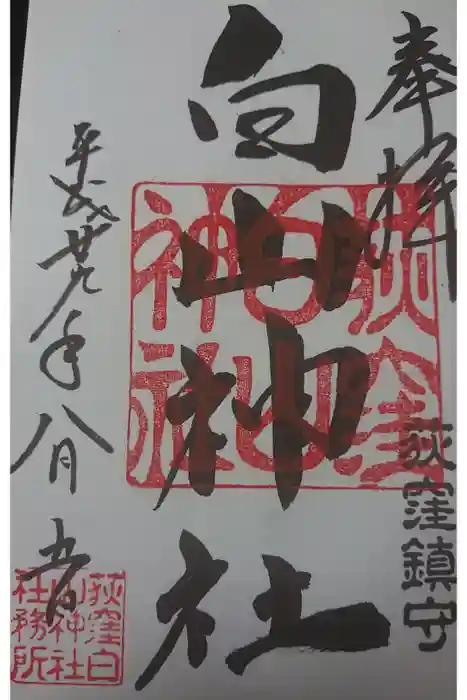 奉拝
荻窪鎮守
荻窪
白山
神社
白山神社
平成廿九年八月吉日
荻窪白
山神社
社務所